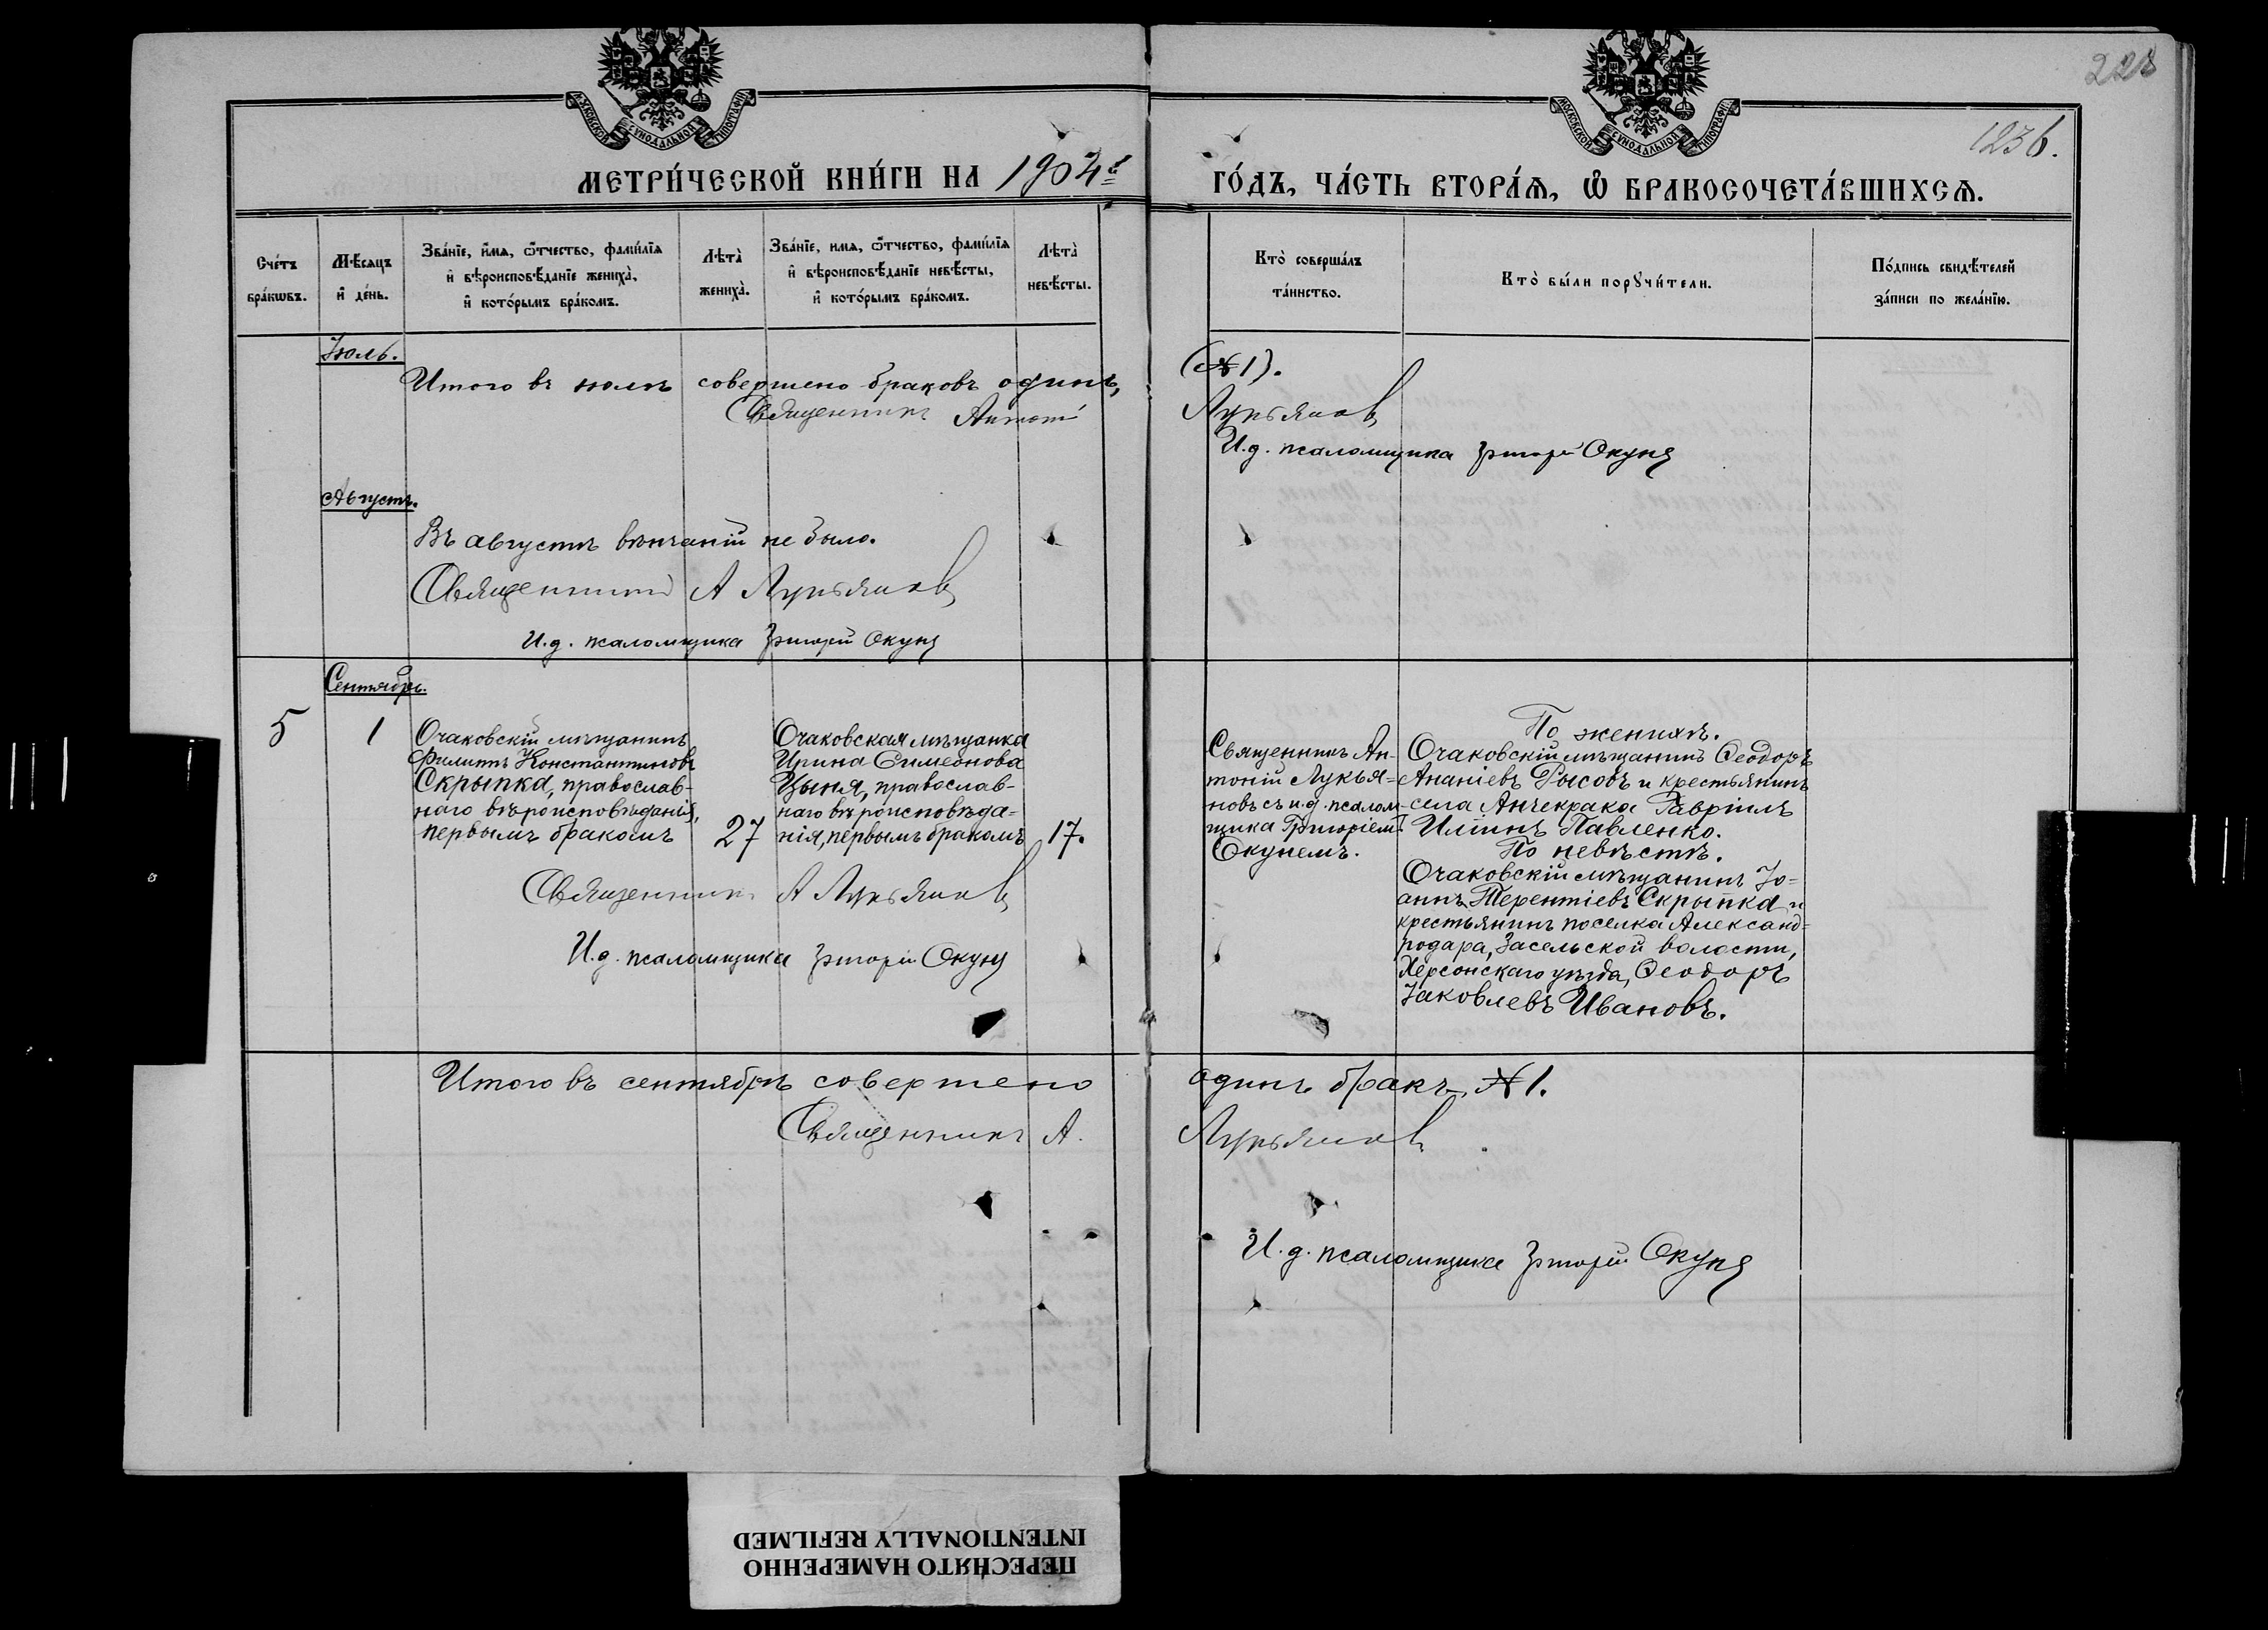 228
1236.
МОСКОВСКОЙ СѴНОДАЛЬНОЙ ТИПОГРАФІИ
МОСКОВСКОЙ СѴНОДАЛЬНОЙ ТИПОГРАФІИ
МЕТРИ́ЧЕСКОЙ КНИ́ГИ НА 1904й
ГО́ДЪ, ЧА́СТЬ ВТОРА́Ѧ, Ѡ҆ БРАКОСОЧЕТА́ВШИХСѦ.
Сче́тъ
бра́кѡвъ.
Мѣ́сяцъ
и҆ де́нь.
Зва́нїе, и҆́мѧ, ѻ҆́тчество, фами́лїѧ
и҆ вѣроисповѣ́данїе жениха̀,
и҆ кото́рымъ бра́комъ.
Лѣта̀
жениха̀.
Зва́нїе, имѧ, ѻ҆́тчество, фами́лїѧ
и҆ вѣроисповѣ́данїе невѣ́сты,
и҆ кото́рымъ бра́комъ.
Лѣта̀
невѣ́сты.
Кто̀ соверша́лъ
та́инство.
Кто̀ бы́ли порꙋчи́тели.
По́дпись свидѣ́телей
за́писи по жела́нїю.
Іюль.
Итого въ іюлѣ совершено браковъ одинъ, (№ 1).
Священникъ Антоній Лукьяновъ
И.д. псаломщика Григорій Окунь
Августъ.
Въ августѣ вѣнчаній не было.
Священникъ А Лукьяновъ
И.д. псаломщика Григорій Окунь
Сентябрь.
5
1
Очаковскій мѣщанинъ
Филиппъ Константиновъ
Скрыпка, православ-
наго вѣроисповѣданія,
первымъ бракомъ
27
Очаковская мѣщанка
Ирина Симеонова
Цыня, православ-
наго вѣроисповѣда-
нія, первымъ бракомъ
17.
Священникъ Ан-
тоній Лукья-
новъ съ и.д. псалом-
щика Григоріемъ
Окунемъ.
По женихѣ.
Очаковскій мѣщанинъ Ѳеодоръ
Ананіевъ Рысовъ и крестьянинъ
села Анчекрака Гавріилъ
Иліинъ Павленко.
По невѣстѣ.
Очаковскій мѣщанинъ Іо-
аннъ Терентіевъ Скрыпка и
крестьянинъ поселка Александ-
родара, Засельской волости,
Херсонскаго уѣзда, Ѳеодоръ
Іаковлевъ Ивановъ.
Священникъ А Лукьяновъ
И.д. псаломщика Григорій Окунь
Итого въ сентябрѣ совершено одинъ бракъ, № 1.
Священникъ А. Лукьяновъ
И.д. псаломщика Григорій Окунь
ПЕРЕСНЯТО НАМЕРЕННО
INTENTIONALLY REFILMED